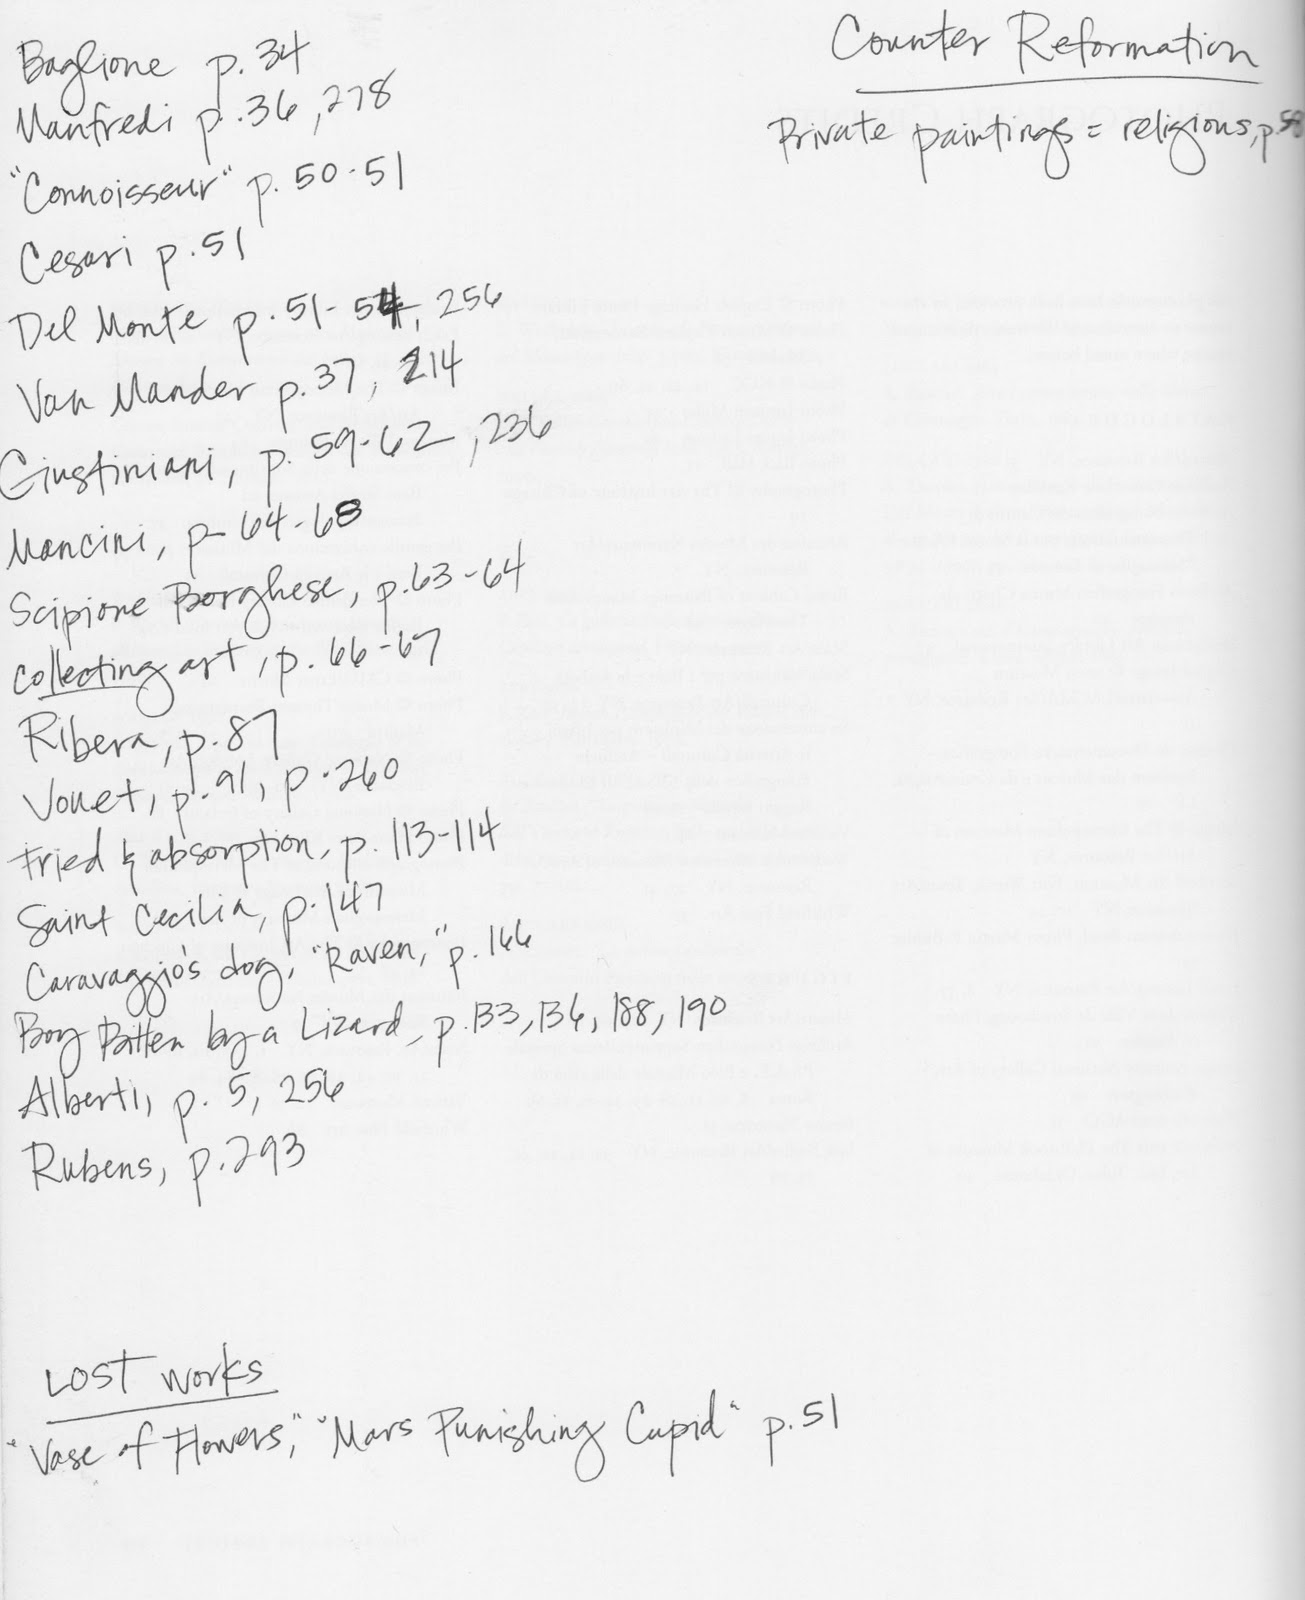 Baglione p.34
Manfredi p.36, 278
"Connoisseur" p. 50-51
Cesari p.51
Del Monte p.51-54, 256
Van Mander p.37, 214
Giustiniani, p. 59-62, 236
Mancini, p 64-68
Scipione Borghese, p.63-64
collecting art, p. 66-67
Ribera, p.87
Vouet, p.91, p.260
Fried & absorption, p. 113-114
Saint Cecilia, p.147
Caravaggio's dog, "Raven," p.166
Boy Bitten by a Lizard, p.133, 136, 188, 190
Alberti, p. 5, 256
Rubens, p.293
Counter Reformation
Private paintings = religious, p.58
LOST works
"Vase of Flowers," "Mars Punishing Cupid" p.51